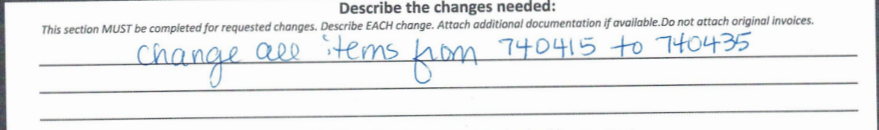 Describe the changes needed:
This section MUST be completed for requested changes. Describe EACH change. Attach additional documentation if available.Do not attach original invoices.
change all items from 740415 to 740435